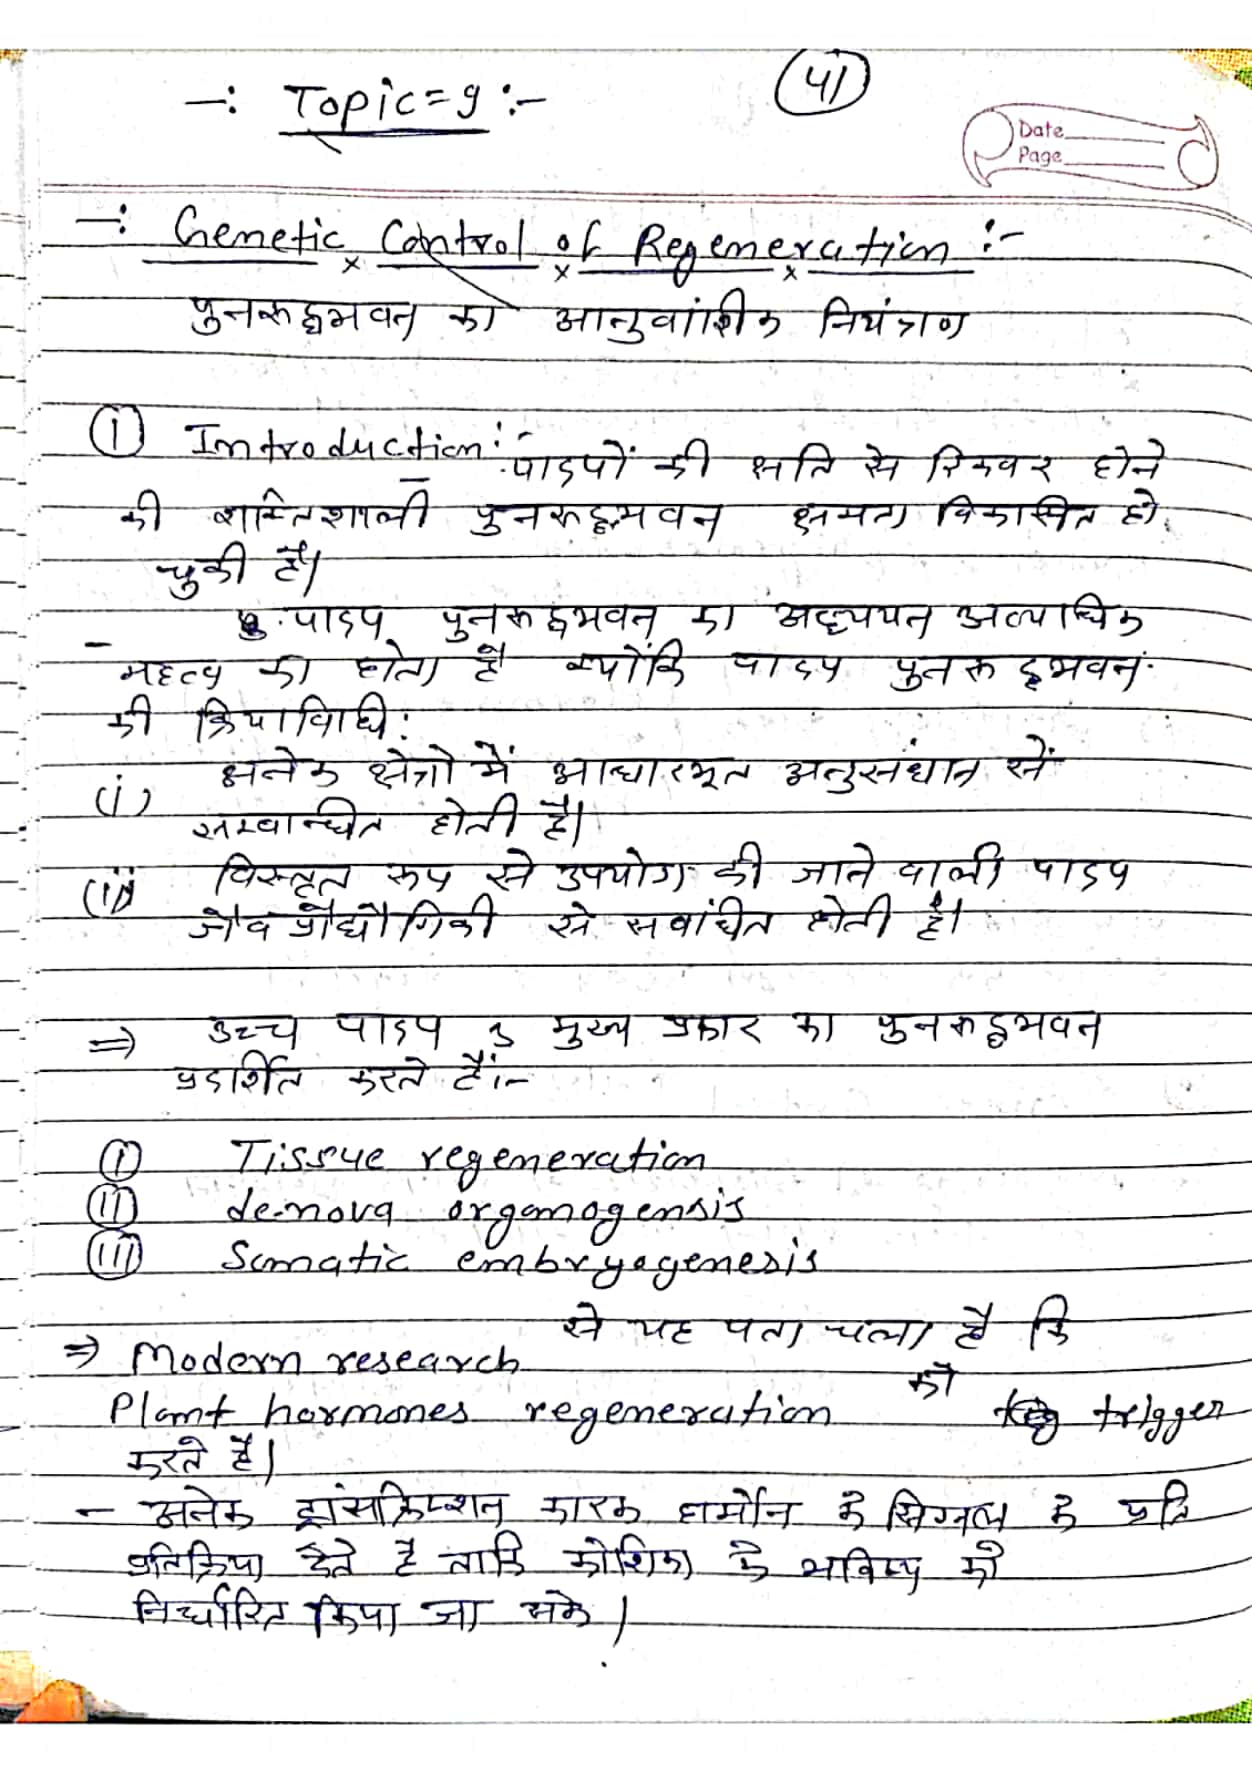 -: Topic=9 :-
41
Date
Page
-: Genetic Control of Regeneration :-
पुनरूद्धभवन का आनुवांशिक नियंत्रण
(i) Introduction :- पाडपों की क्षति से रिकवर होने
की शक्तिशाली पुनरूद्धभवन क्षमता विकासित हो
चुकी है।
- पाडप पुनरूद्धभवन का अद्ध्ययन अत्याधिक
महत्व का होता है क्योंकि पाडप पुनरूद्धभवन
की क्रियाविधि:
(i) अनेक क्षेत्रो में आधारभूत अनुसंधान सें
सम्बान्धित होती है।
(ii) विस्तृत रूप से उपयोग की जाने वाली पाडप
जैव प्रौद्यौगिकी से सबांधित होती है।
=> उच्च पाडप 3 मुख्य प्रकार का पुनरूद्धभवन
प्रदार्शित करते हैं:-
(i) Tissue regeneration
(ii) de-nova organogensis
(iii) Somatic embryogenesis
=> Modern research से यह पता चला है कि
Plant hormones regeneration को trigger
करते है।
- अनेक ट्रांसक्रिप्शन कारक हार्मोन के सिग्नल के प्रति
प्रतिक्रिया देते है ताकि कोशिका के भविष्य को
निर्धारित किया जा सके।